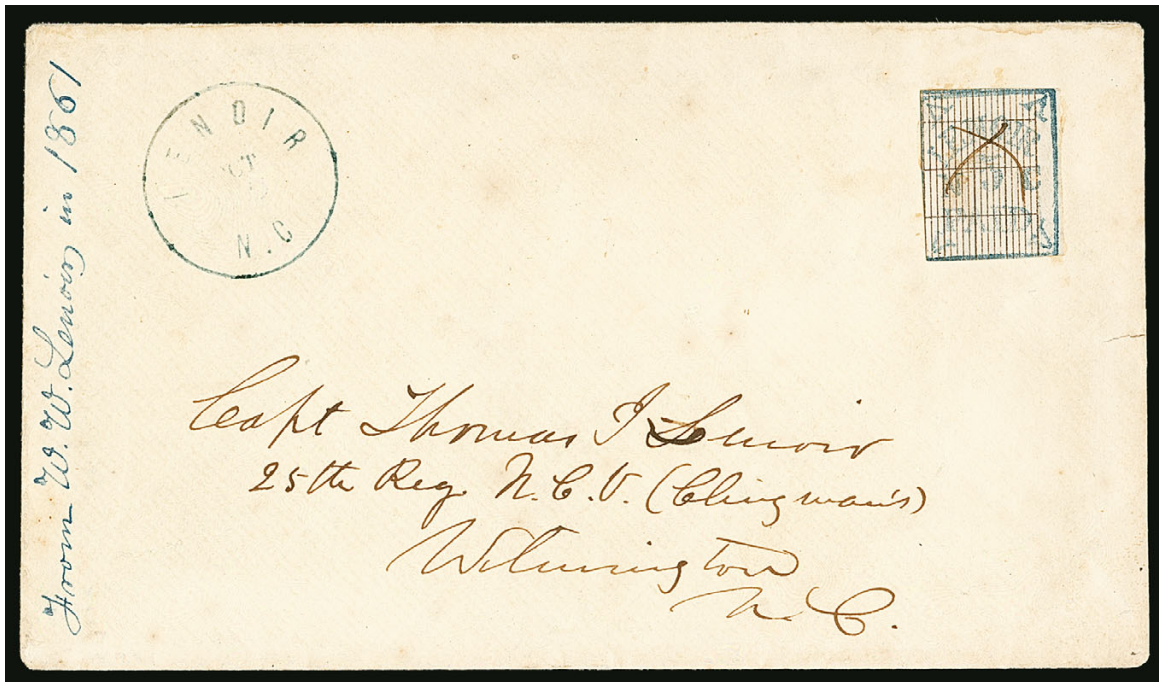 From W. W. Lenoir in 1861
LENOIR
OCT
N.C
LENOIR
5
N C
PAID
Capt Thomas I Lenoir
25th Reg. N.C.V. (Clingman's)
Wilmington
N.C.